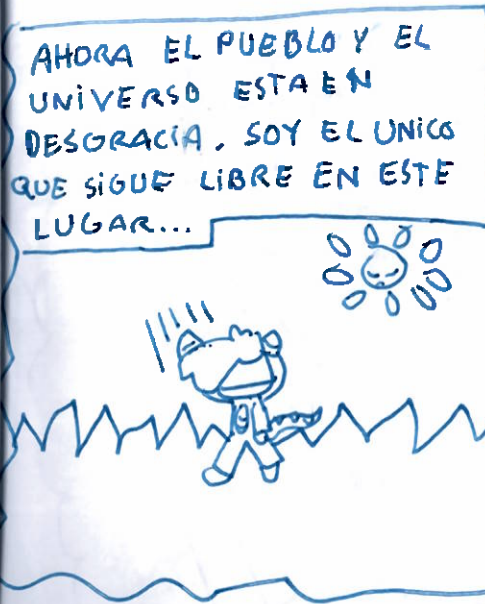 AHORA EL PUEBLO Y EL
UNIVERSO ESTA EN
DESGRACIA. SOY EL UNICO
QUE SIGUE LIBRE EN ESTE
LUGAR...